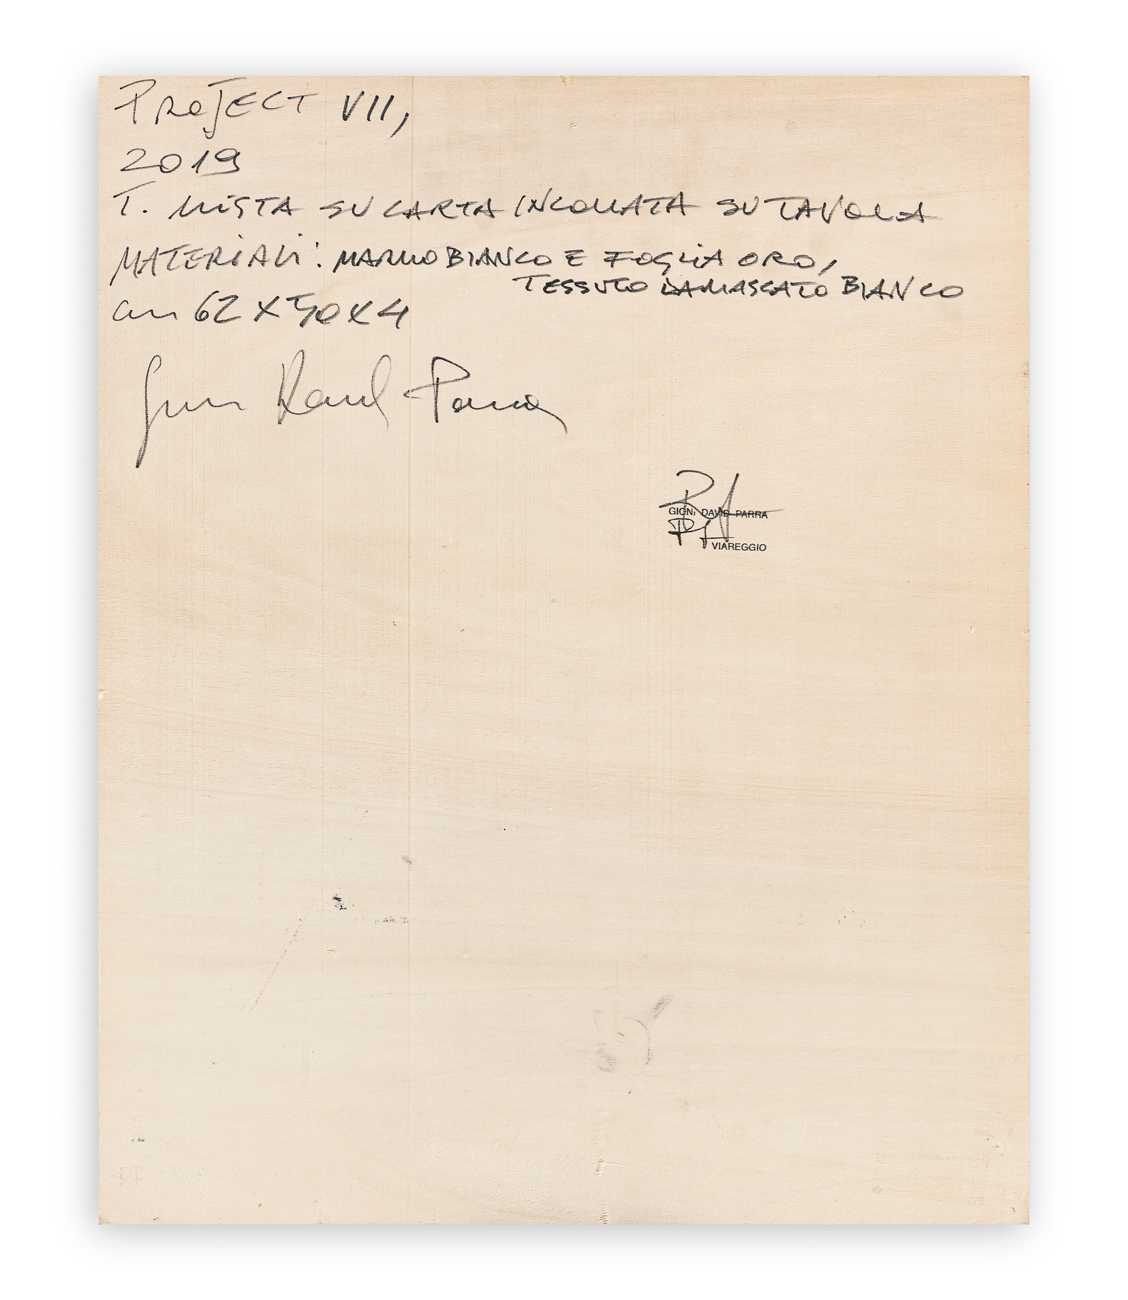 PROJECT VII,
2019
T. MISTA SU CARTA INCOLLATA SU TAVOLA
MATERIALI: MARMO BIANCO E FOGLIA ORO,
TESSUTO DAMASCATO BIANCO
cm 62 X 50 X 4
Parra
GION: DAVID PARRA
VIAREGGIO